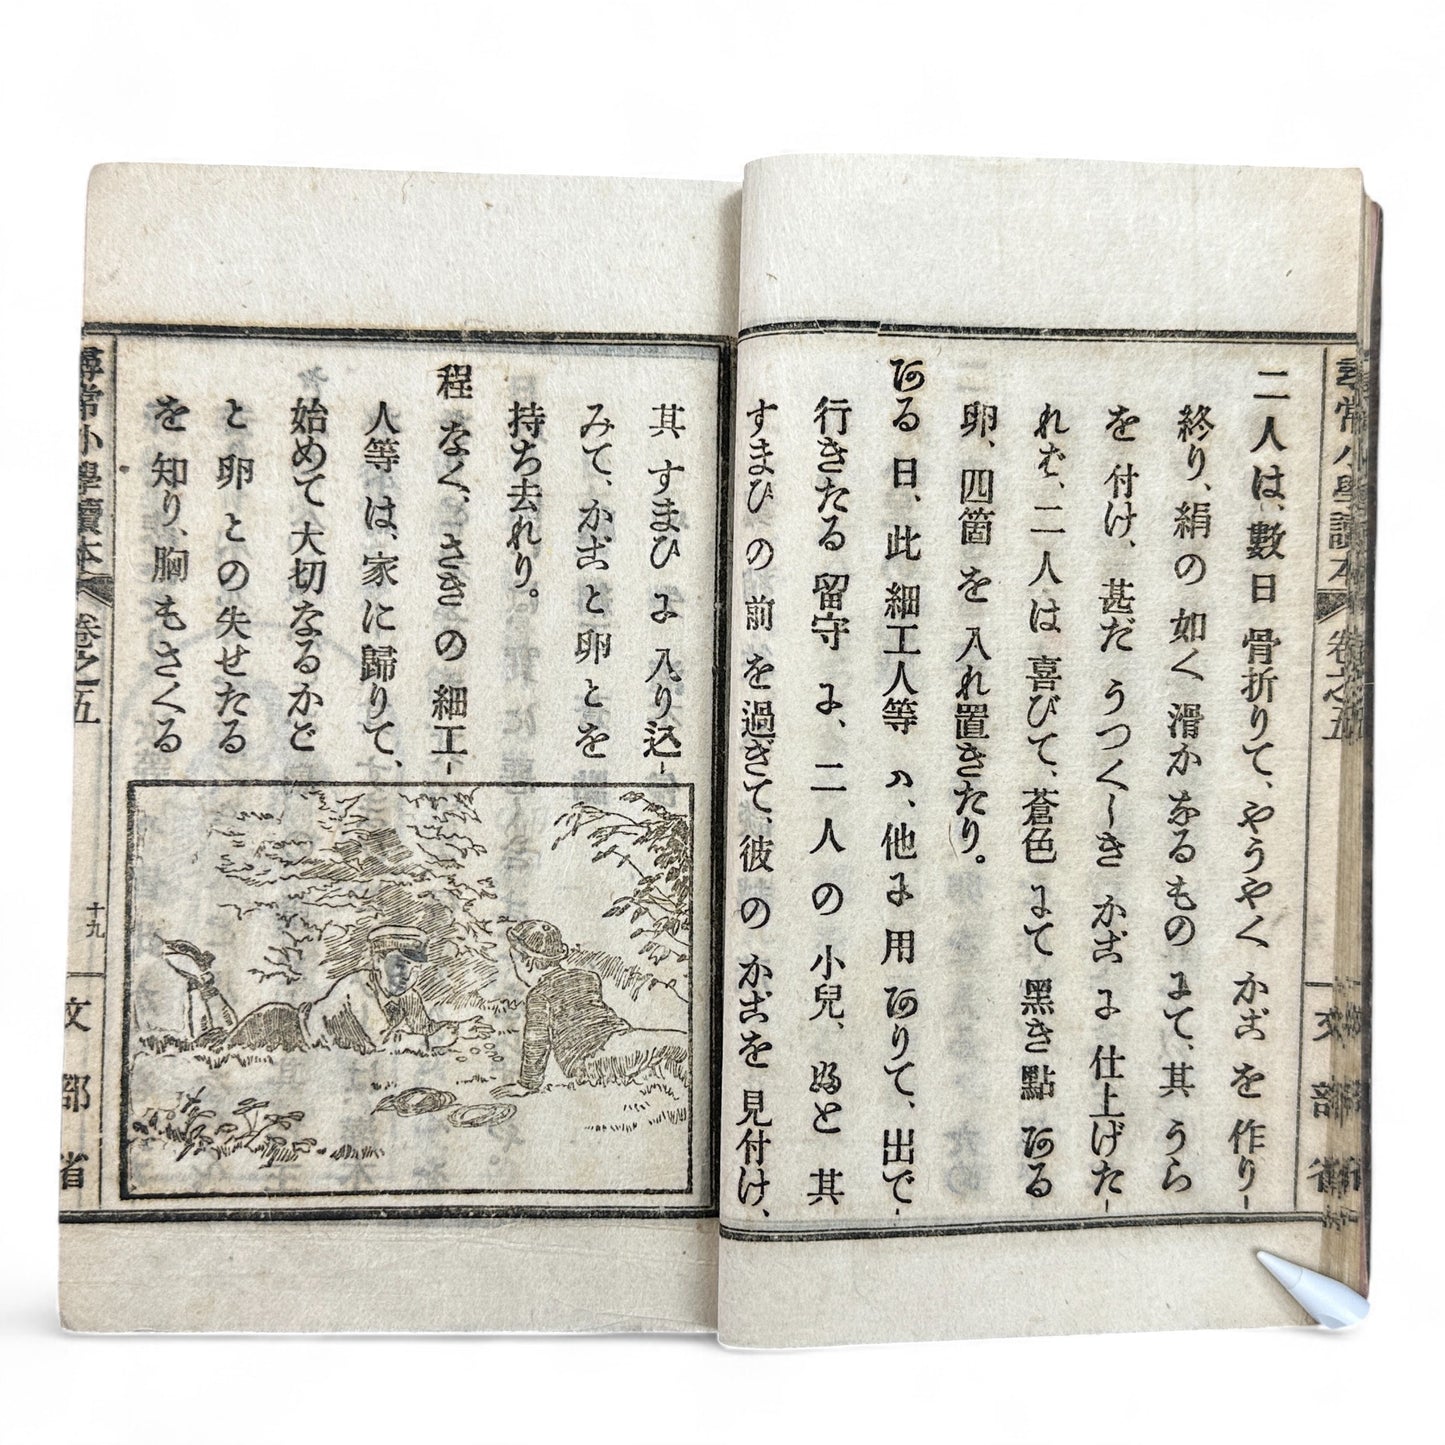 二人は、數日骨折りて、やうやくかごを作り-
終り、絹の如く滑かなるものにて、其うら
を付け、甚だうつくしきかごに仕上げた-
れば、二人は喜びて、蒼色にて黑き點ある
卵、四箇を入れ置きたり。
ある日、此細工人等ハ、他に用ありて、出で-
行きたる留守に、二人の小兒、ふと其
すまひの前を過ぎて、彼のかごを見付け、
其すまひに入り込-
みて、かごと卵とを
持ち去れり。
程なく、さきの細工-
人等は、家に歸りて、
始めて大切なるかご
と卵との失せたる
を知り、胸もさくる
尋常小學讀本
卷之五
十九
文部省
尋常小學讀本
卷之五
文部省